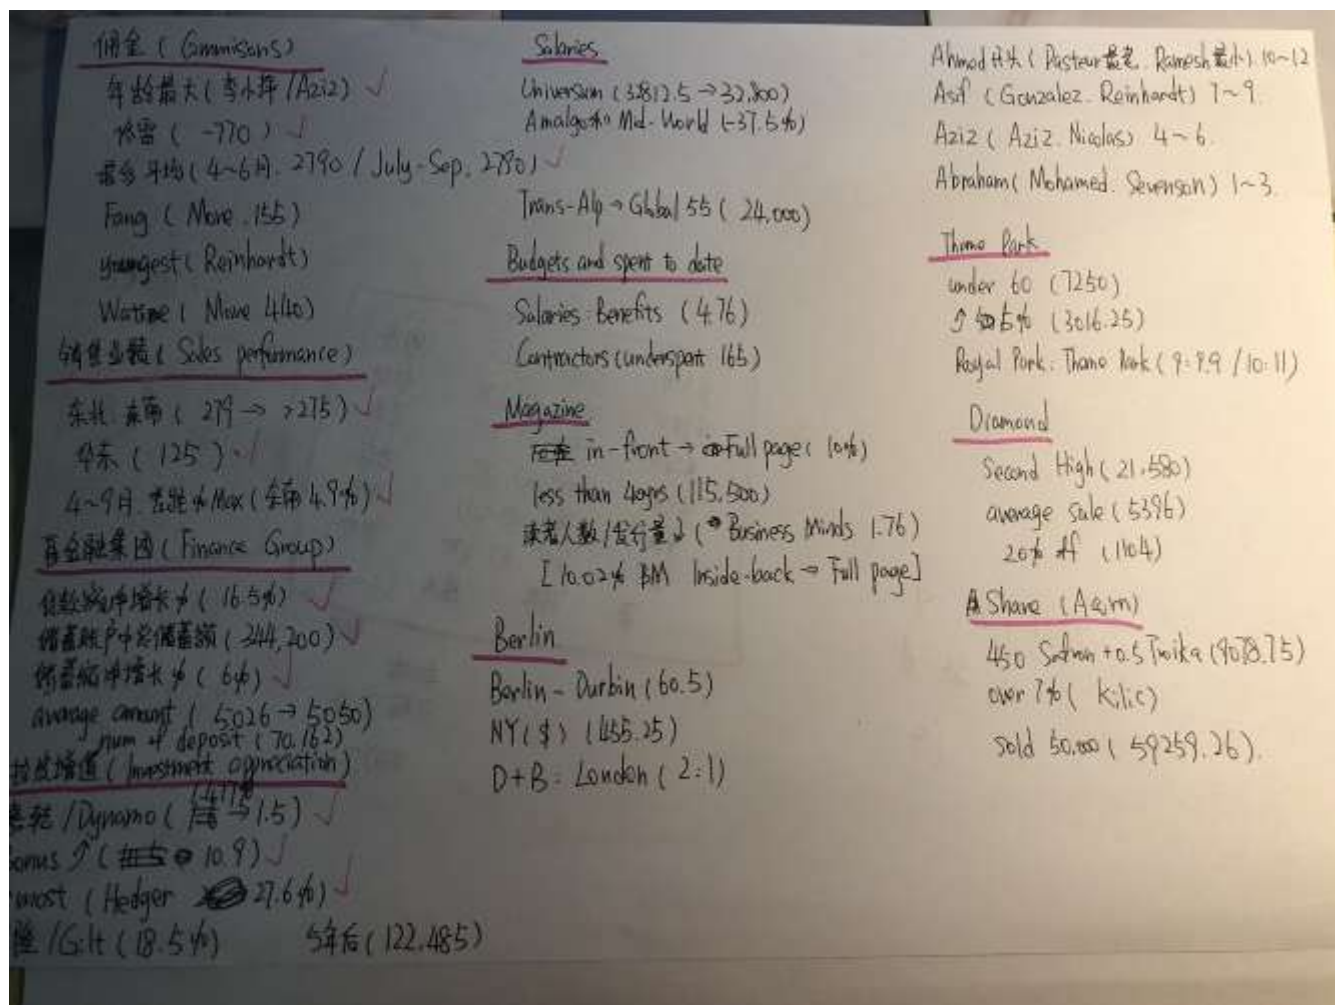 佣金 (Commisons)
年龄最大(李小萍/Aziz) ✓
(-770) ✓
最多 平均(4~6月. 2790 / July-Sep. 2790) ✓
Fang (More .155)
youngest (Reinhardt)
(More 440)
销售业绩 (Sales performance)
东北. 东南 (279 → >275) ✓
华东 (125) ✓
4~9月 % Max (4.9%) ✓
金融集团 (Finance Group)
增长% (16.5%) ✓
储蓄账户中总储蓄额 (344,200) ✓
增长% (6%) ✓
average amount (5026 → 5050)
num of deposit (70.162)
增值 (Investment appreciation)
/Dynamo (→ 1.5) ✓
onus ↑ (10.9) ✓
most (Hedger 27.6%) ✓
/Gilt (18.5%) 5年后 (122.485)
Salaries
Universum (32812.5 → 32,800)
Mid-World (-37.5%)
Trans-Alp → Global 55 (24,000)
Budgets and spent to date
Salaries: Benefits (4.76)
Contractors (underspent 165)
Magazine
in-front → Full page (10%)
less than (115,500)
读者人数/发行量 (Business Minds 1.76)
[10.02% BM Inside-back → Full page]
Berlin
Berlin - Durbin (60.5)
NY ($) (455.25)
D+B : London (2:1)
Ahmed 开头 (Pasteur 最老. Ramesh 最小) 10~12
Asif (Gonzalez. Reinhardt) 7~9.
Aziz (Aziz. Nicolas) 4~6.
Abraham (Mohamed. Sevenson) 1~3.
Theme Park
under 60 (7250)
↑ 5% (3016.25)
Royal Park. Theme Park (9:9.9 / 10:11)
Diamond
Second High (21.580)
average sale (5396)
20% off (1104)
Share
450 + 0.5 Troika (9078.75)
over 7% (Kilic)
sold 50.000 (59259.26).